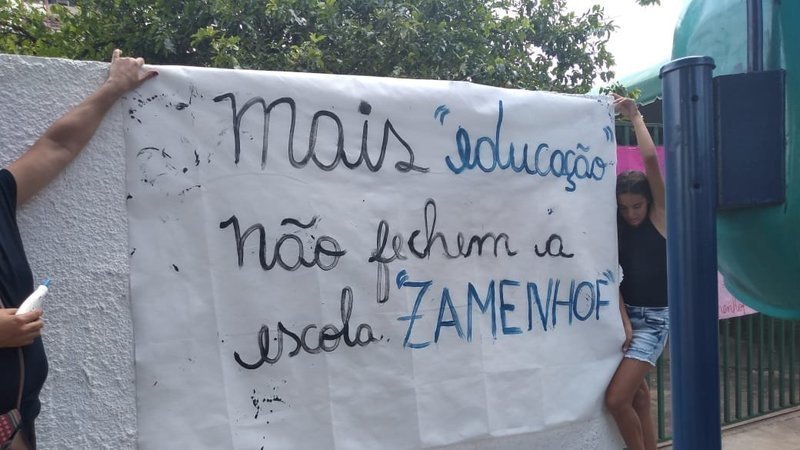 Mais "educação"
Não fechem a
escola. "ZAMENHOF"